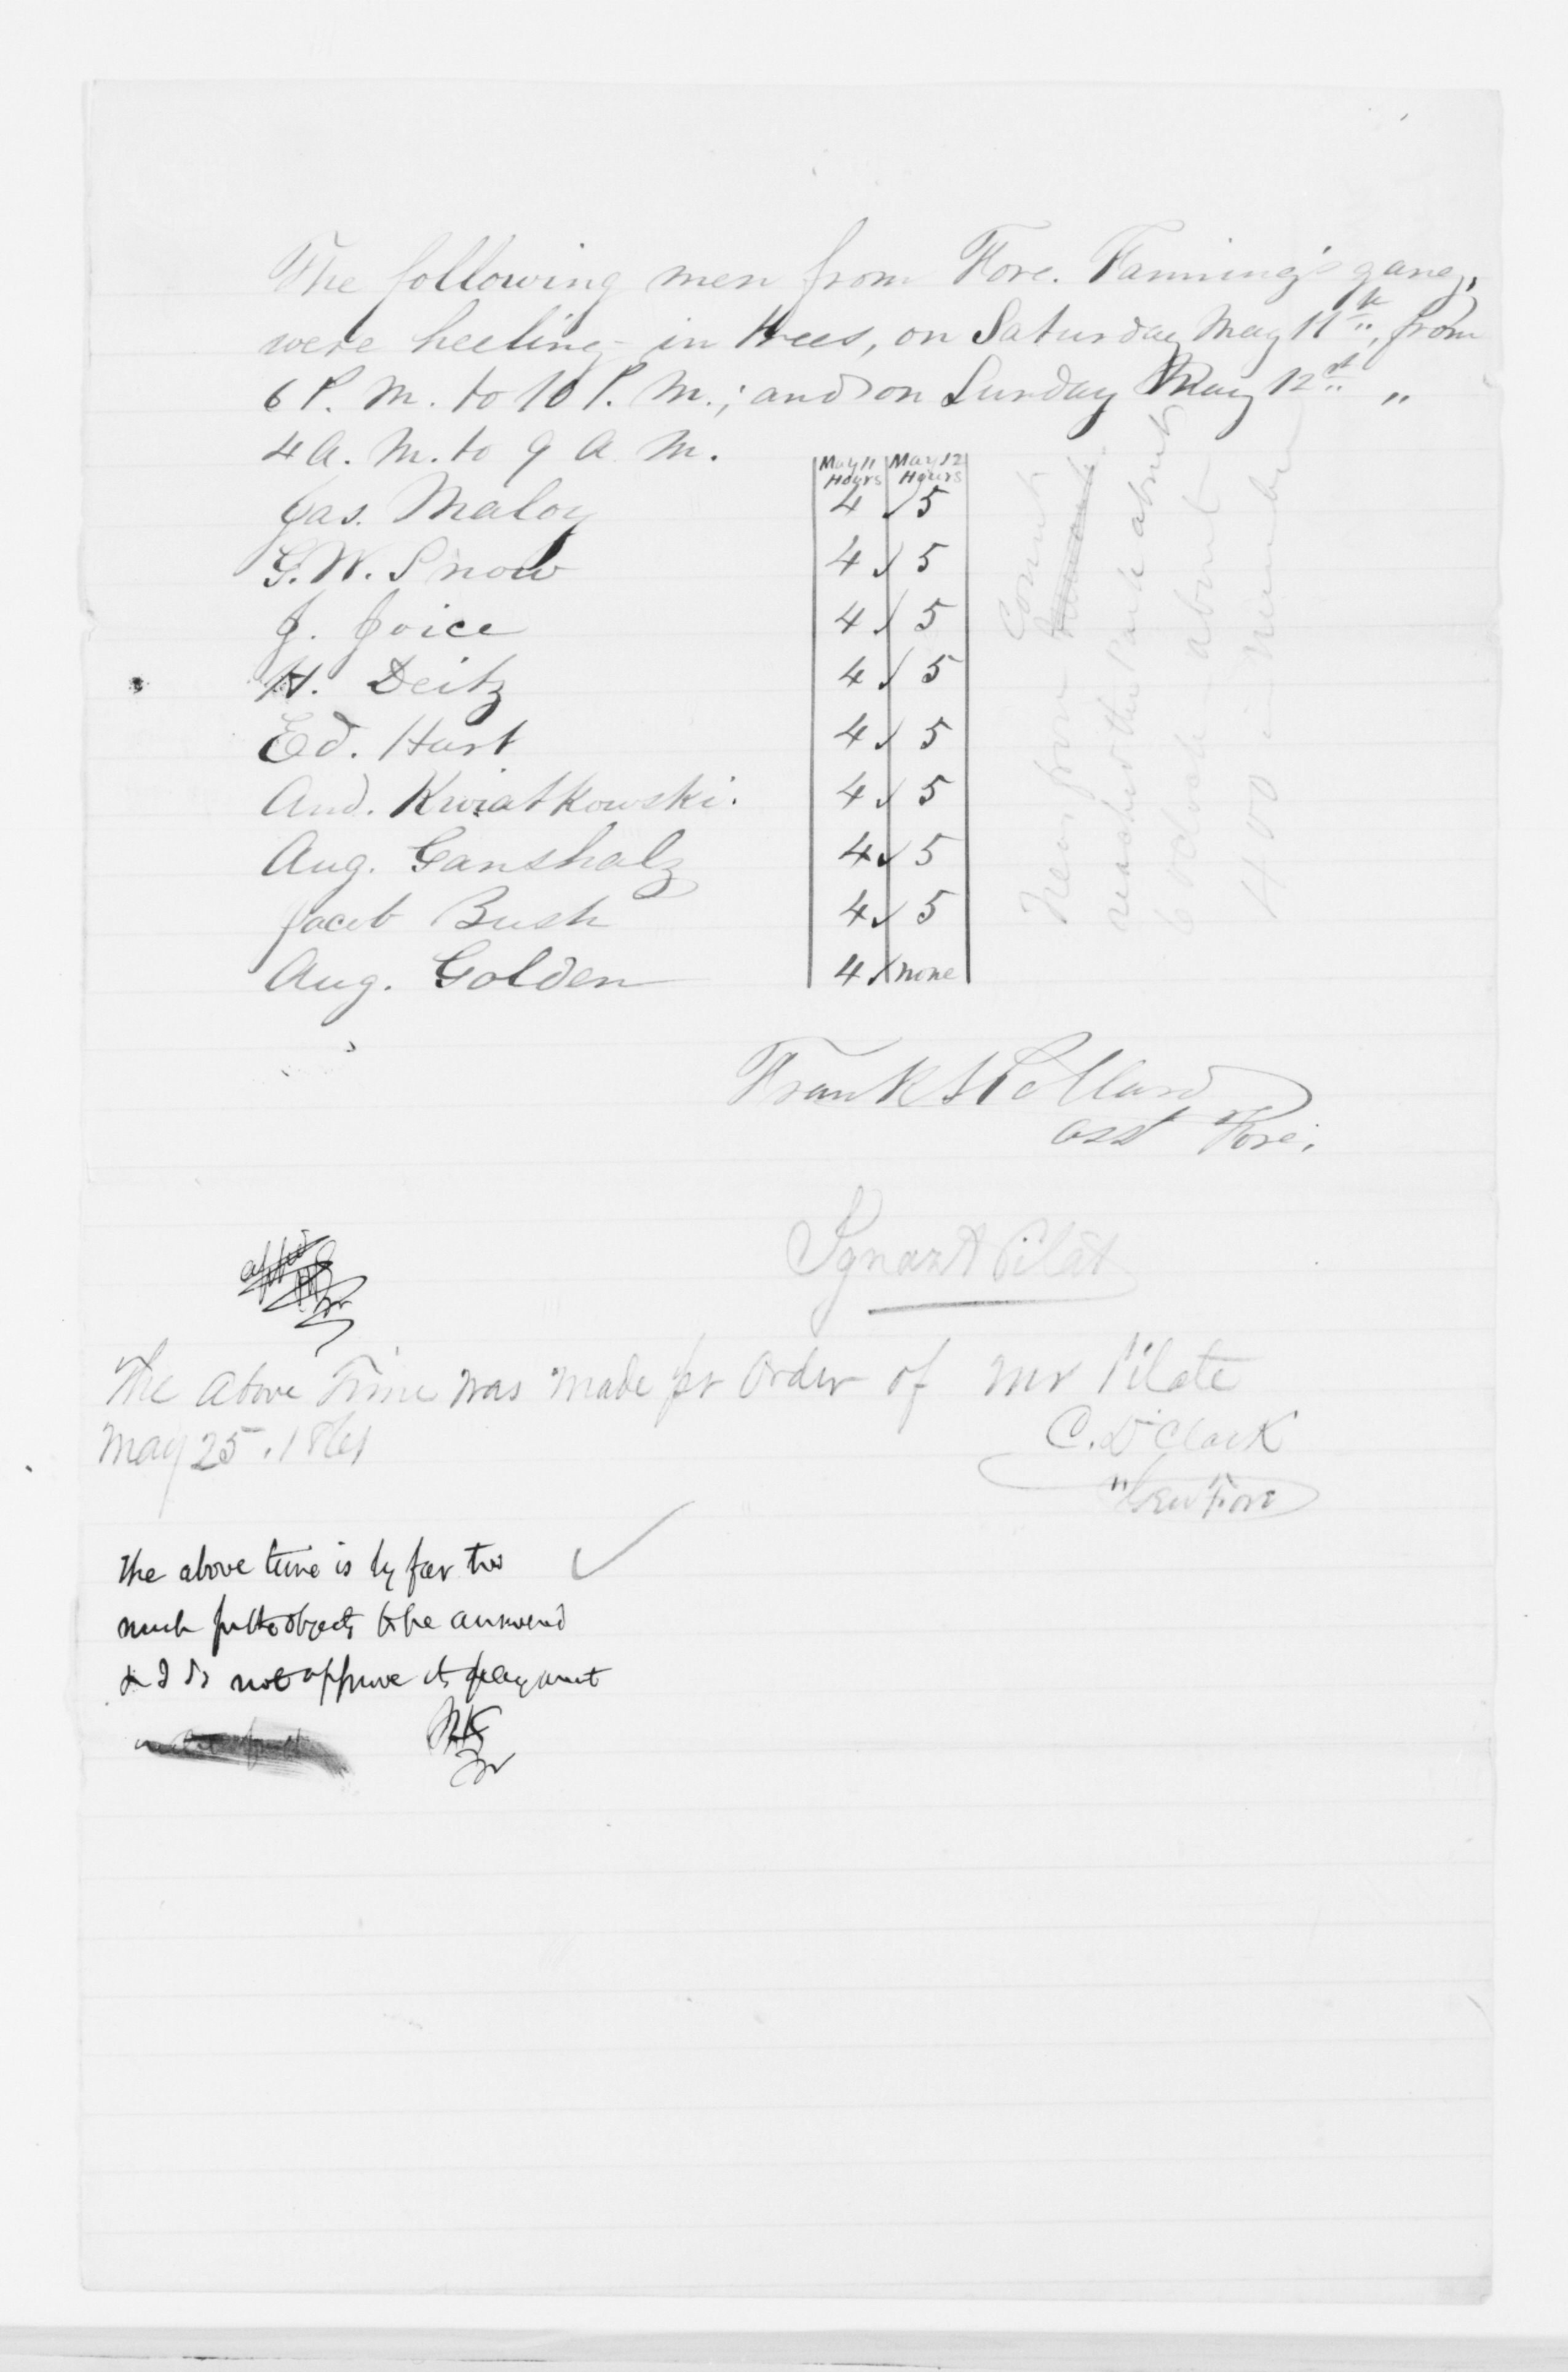 The following men from Fore. Fanning's gang,
were heeling-in trees, on Saturday May 11th, from
6 P. M. to 10 P. M.; and on Sunday May 12st "
4 A. M. to 9 A. M.
May 11 Hours May 12 Hours
Jas. Maloy 4 ✓ 5
G. W. Snow 4 ✓ 5
J. Joice 4 ✓ 5
H. Deitz 4 ✓ 5
Ed. Hart 4 ✓ 5
And. Kwiatkowski. 4 ✓ 5
Aug. Ganshalz 4 ✓ 5
Jacob Bush 4 ✓ 5
Aug. Golden 4 ✓ none
Trees from Count
reached the Park about
6 oclock - about
400 in number
Frank A Pollard
asst Fore.
Ignaz A Pilat
The above Time was made per order of Mr Pilate
May 25. 1861
C. D. Clark
Gen Fore
The above time is by far too
much for the objects to be answered
& I do not approve its payment